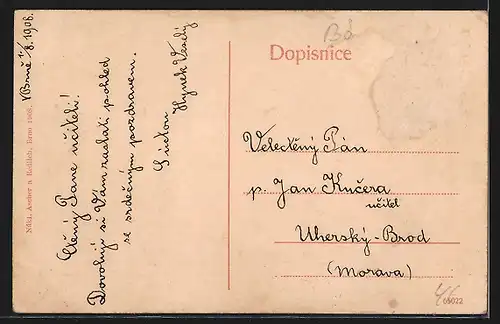 V Brně 1/8. 1906.
Ctěný Pane učiteli!
Dovoluji si Vám zaslati pohled
se srdečným pozdravem.
S úctou
Hynek Veselý
Dopisnice
Velectěný Pán
p. Jan Kučera
učitel
Uherský-Brod
(Morava)
65022